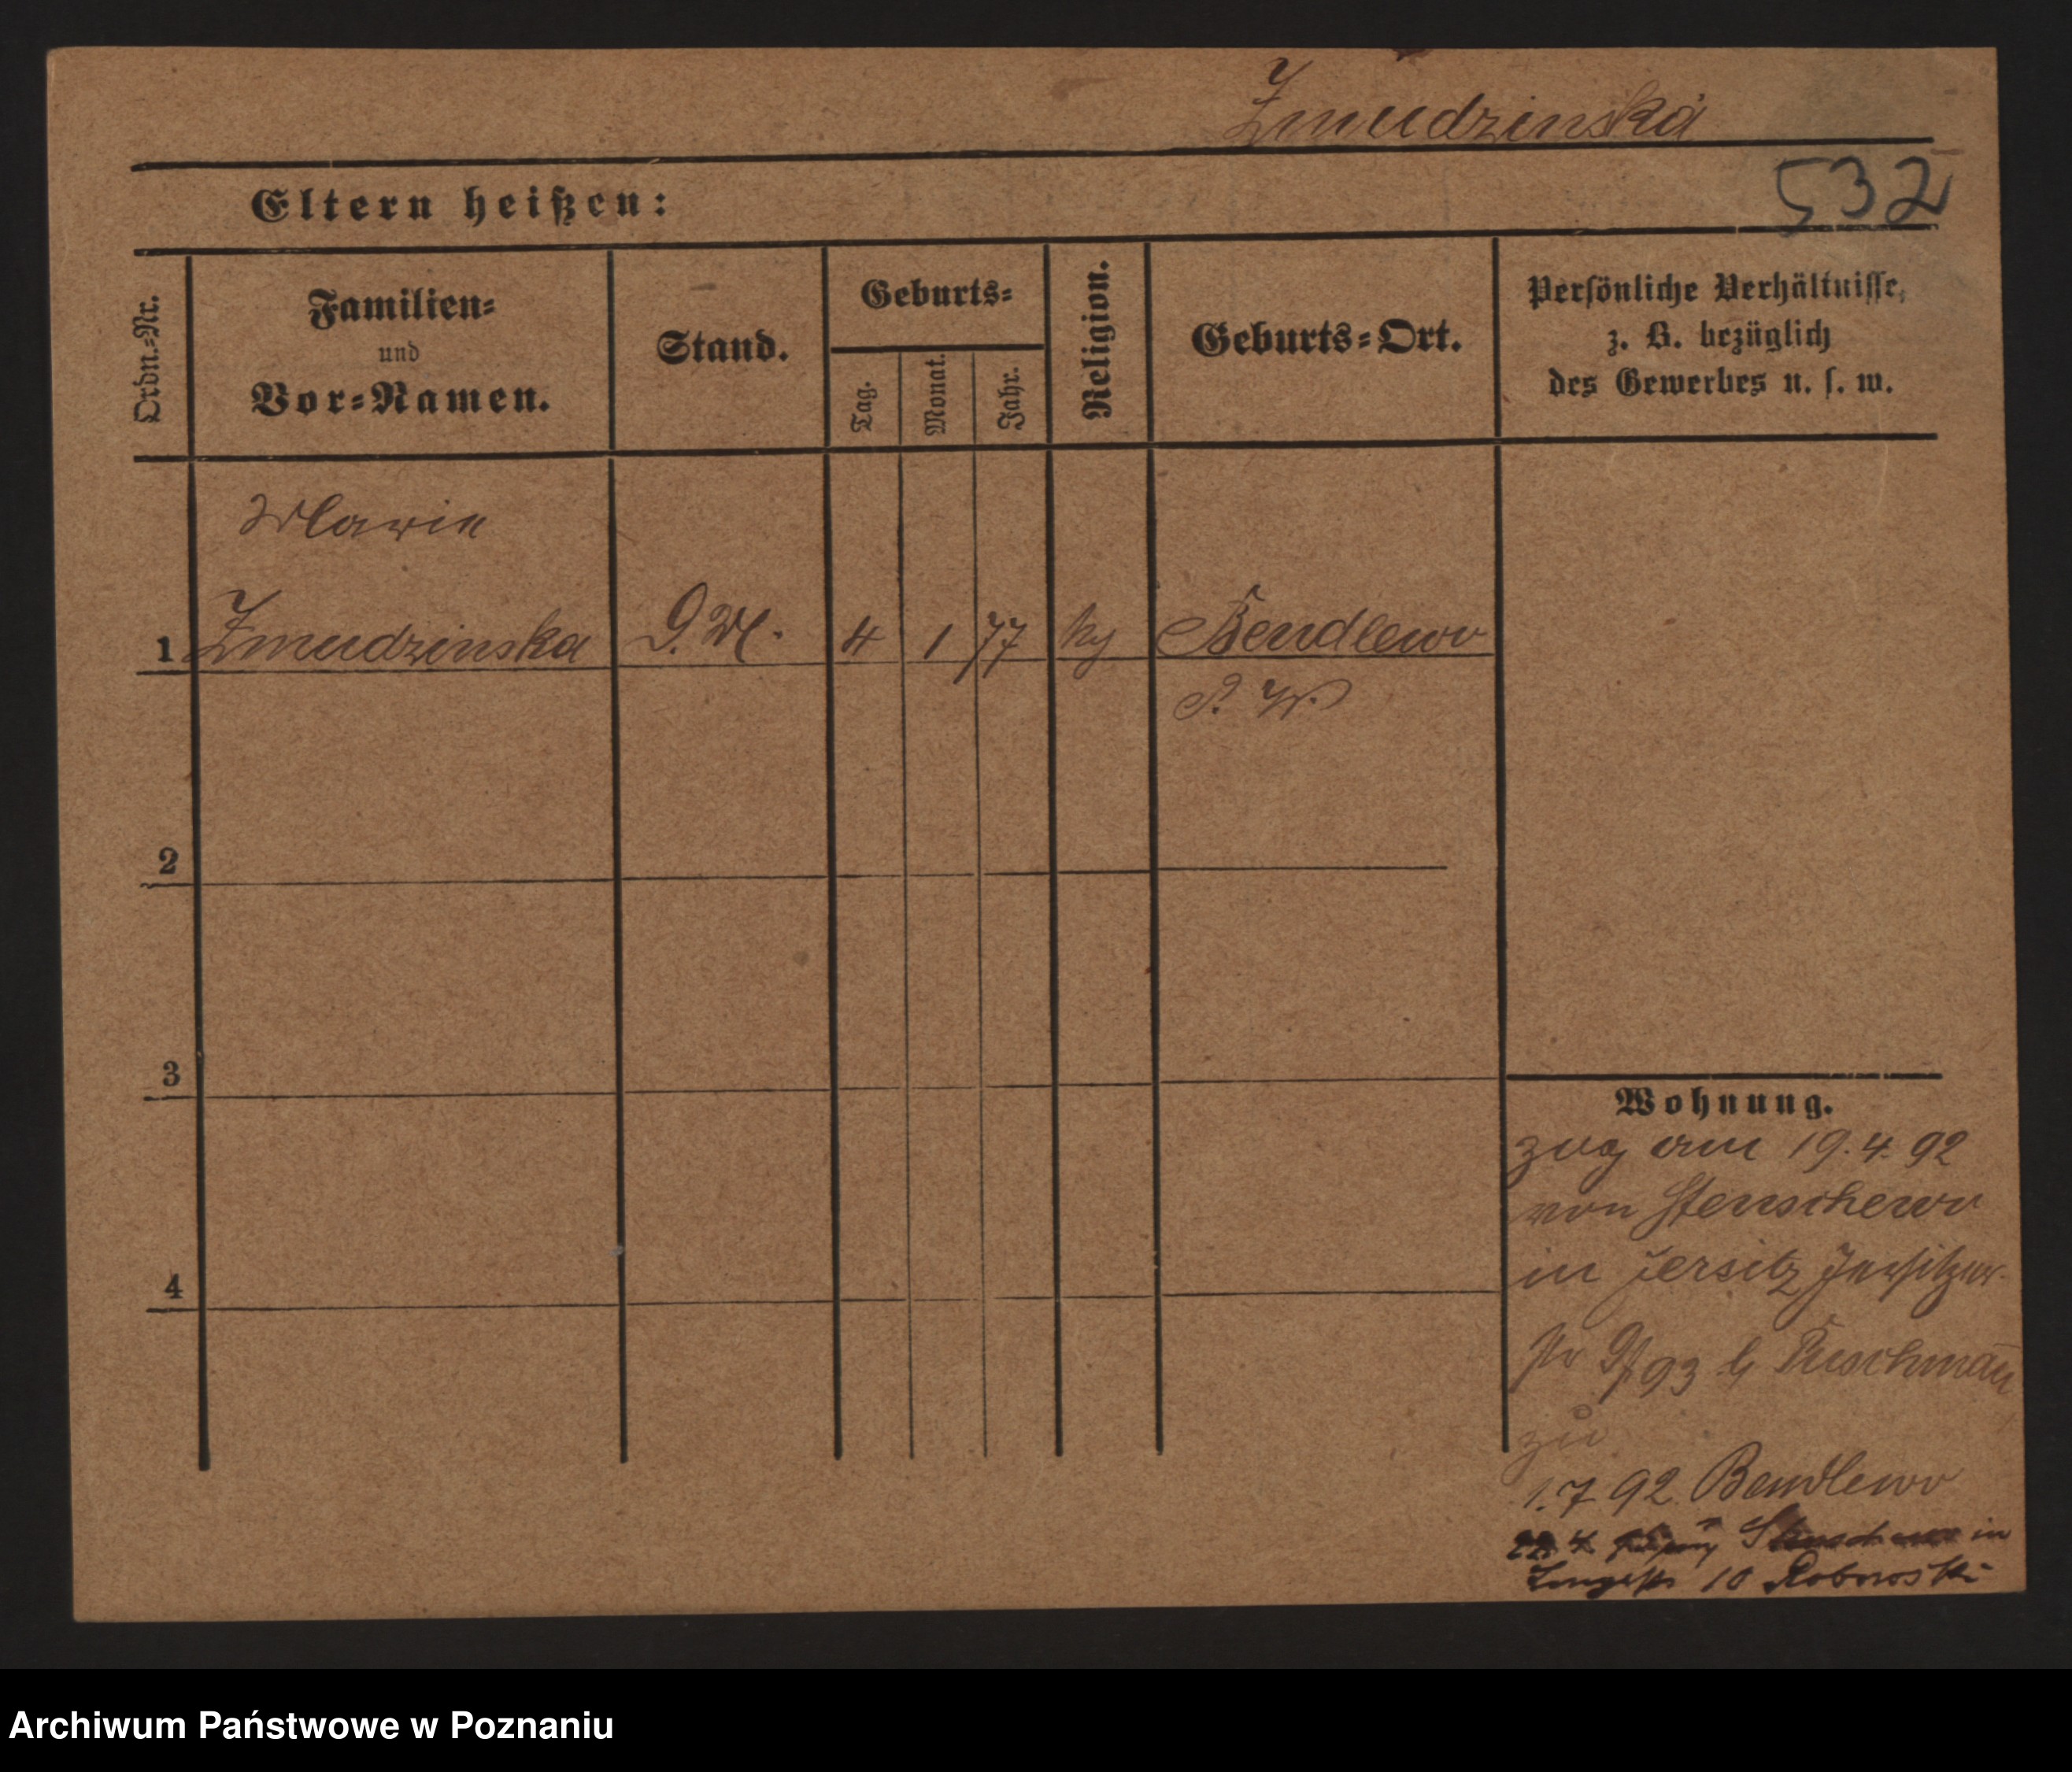 Zmudzinska
532
Eltern heißen:
Ordn.=Nr.
Familien=
und
Vor=Namen.
Stand.
Geburts=
Tag.
Monat.
Jahr.
Religion.
Geburts=Ort.
Persönliche Verhältnisse,
z. B. bezüglich
des Gewerbes u. s. w.
Marie
1 Zmudzinska D. M. 4 1 77 Bendlewo
P. W.
2
3
4
Wohnung.
zug am 19.4.92
von Stenschewo
in Jersitz Jersitzer-
93 b Puschmann
zu
1.7 92 Bendlewo
4 in
10
Archiwum Państwowe w Poznaniu